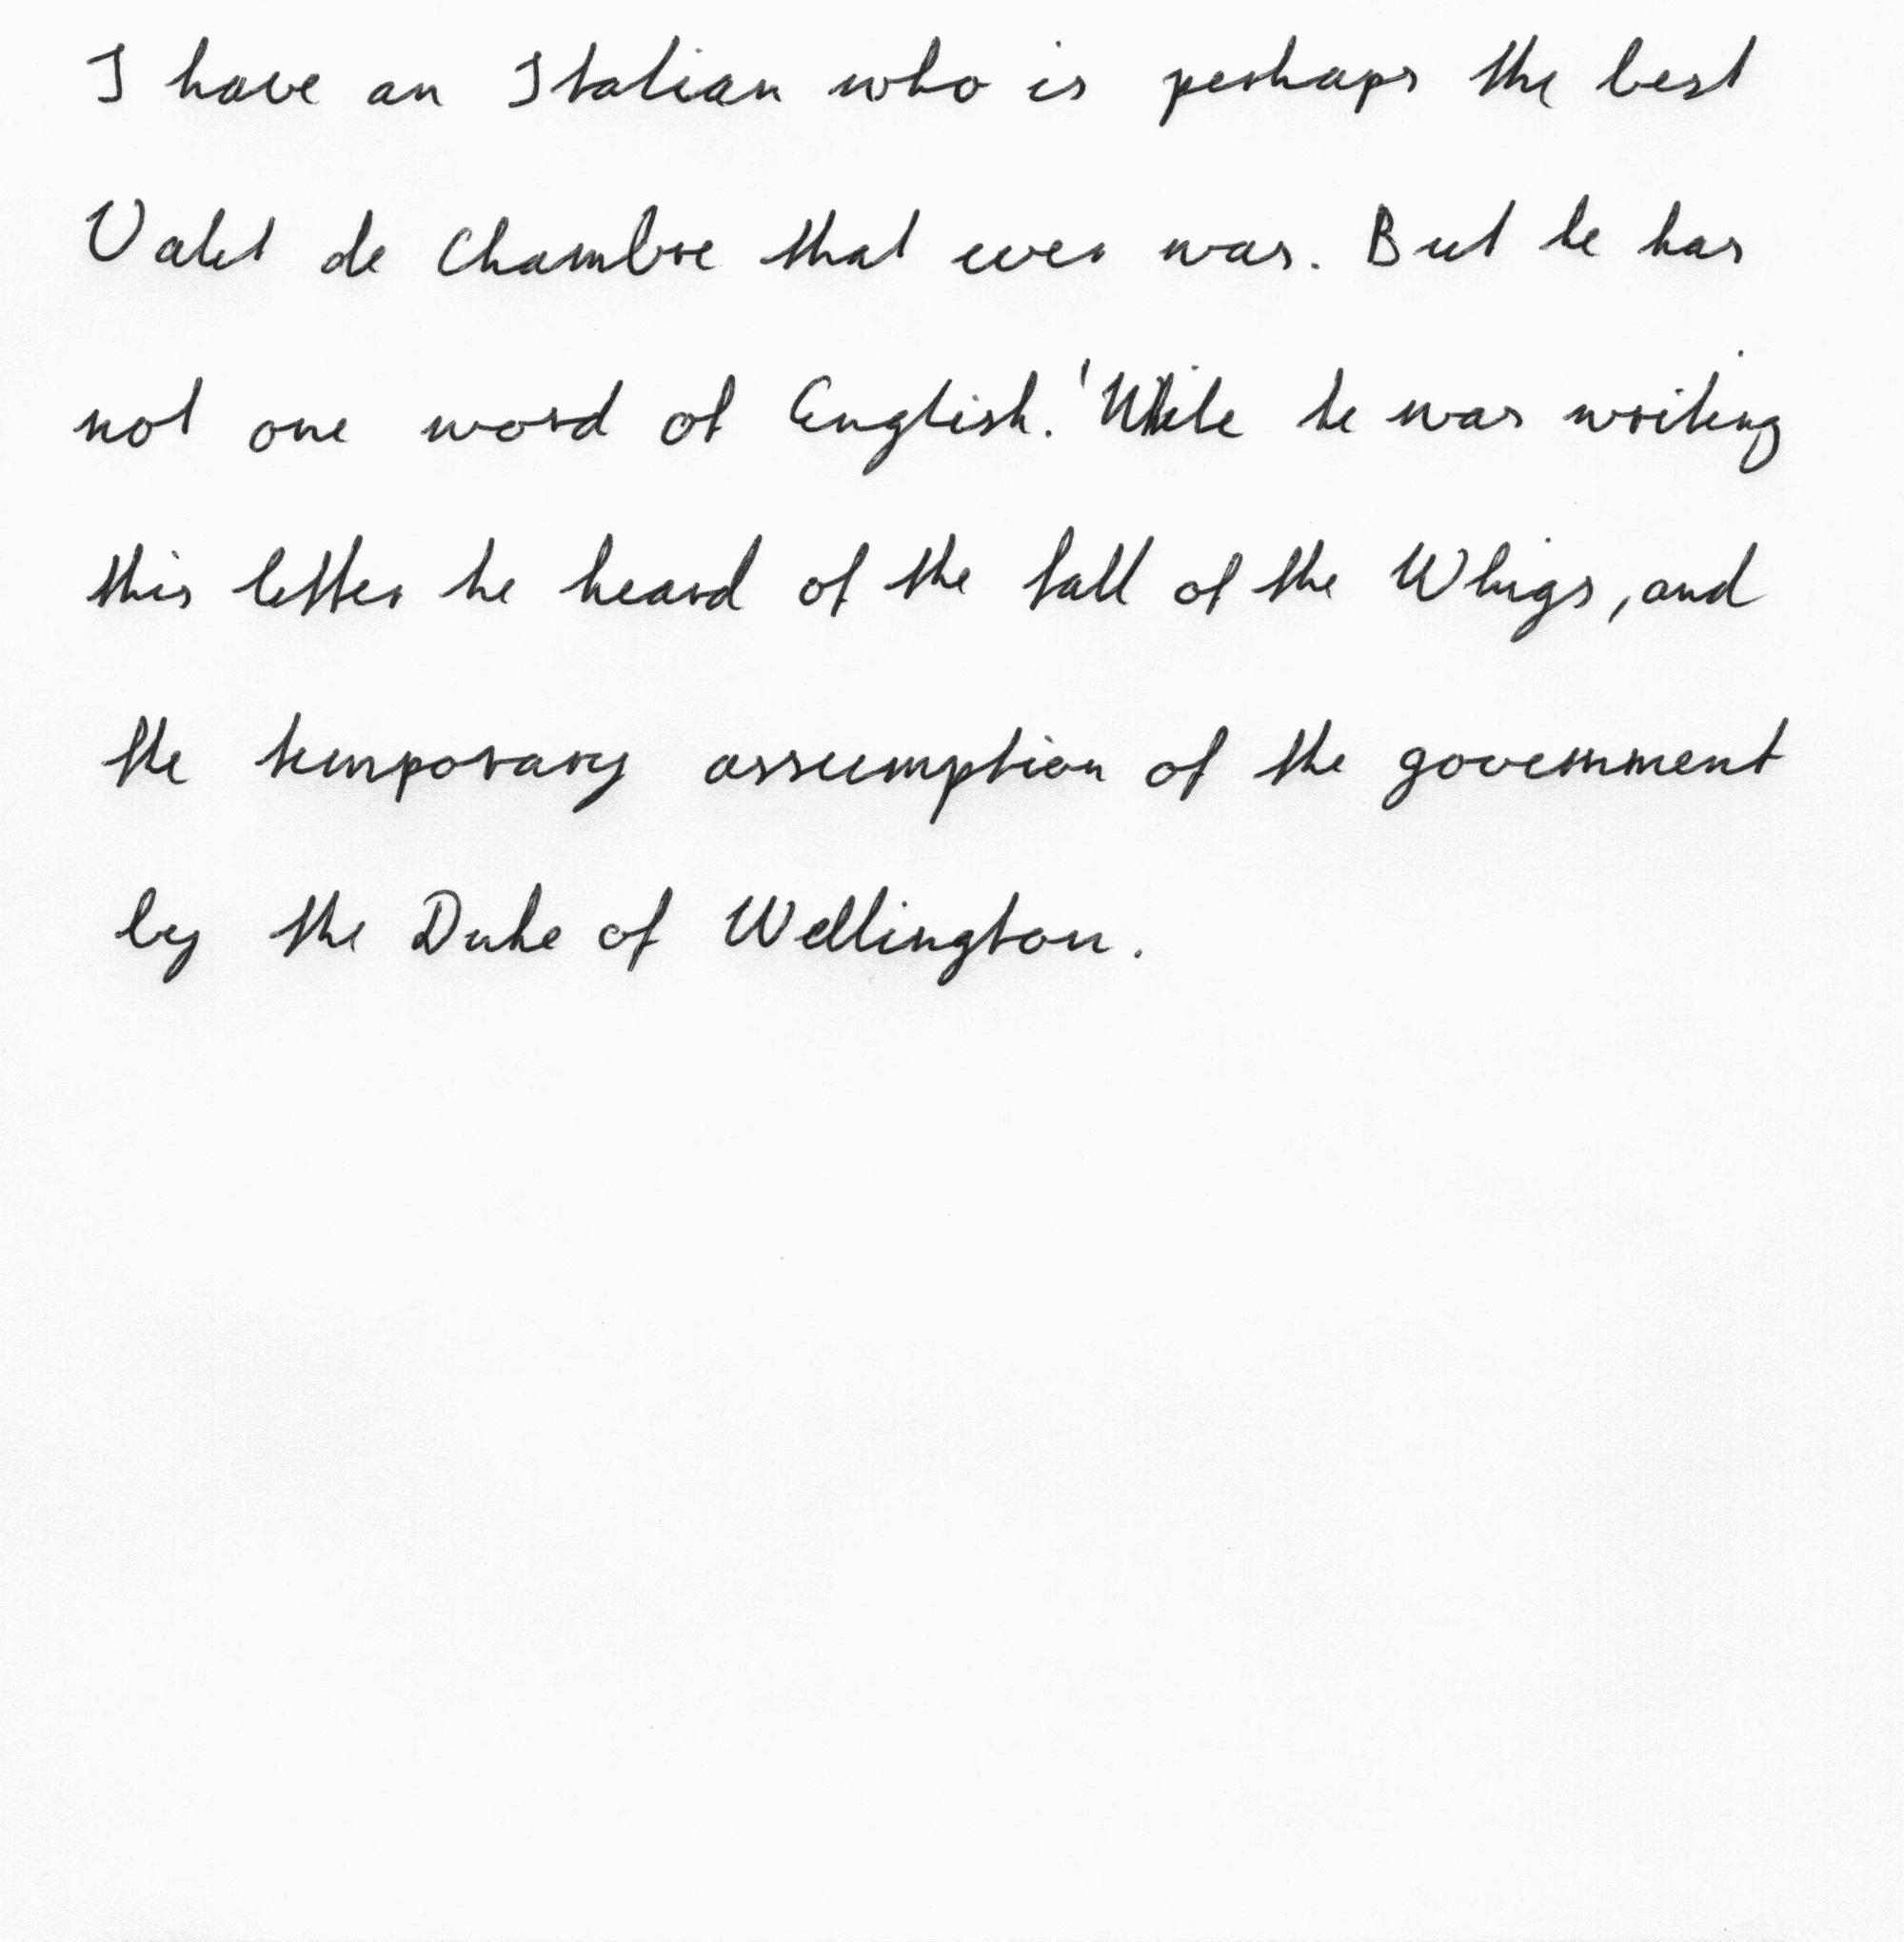 I have an Italian who is perhaps the best
Valet de Chambre that ever was. But he has
not one word of English.' While he was writing
this letter he heard of the fall of the Whigs, and
the temporary assumption of the government
by the Duke of Wellington.